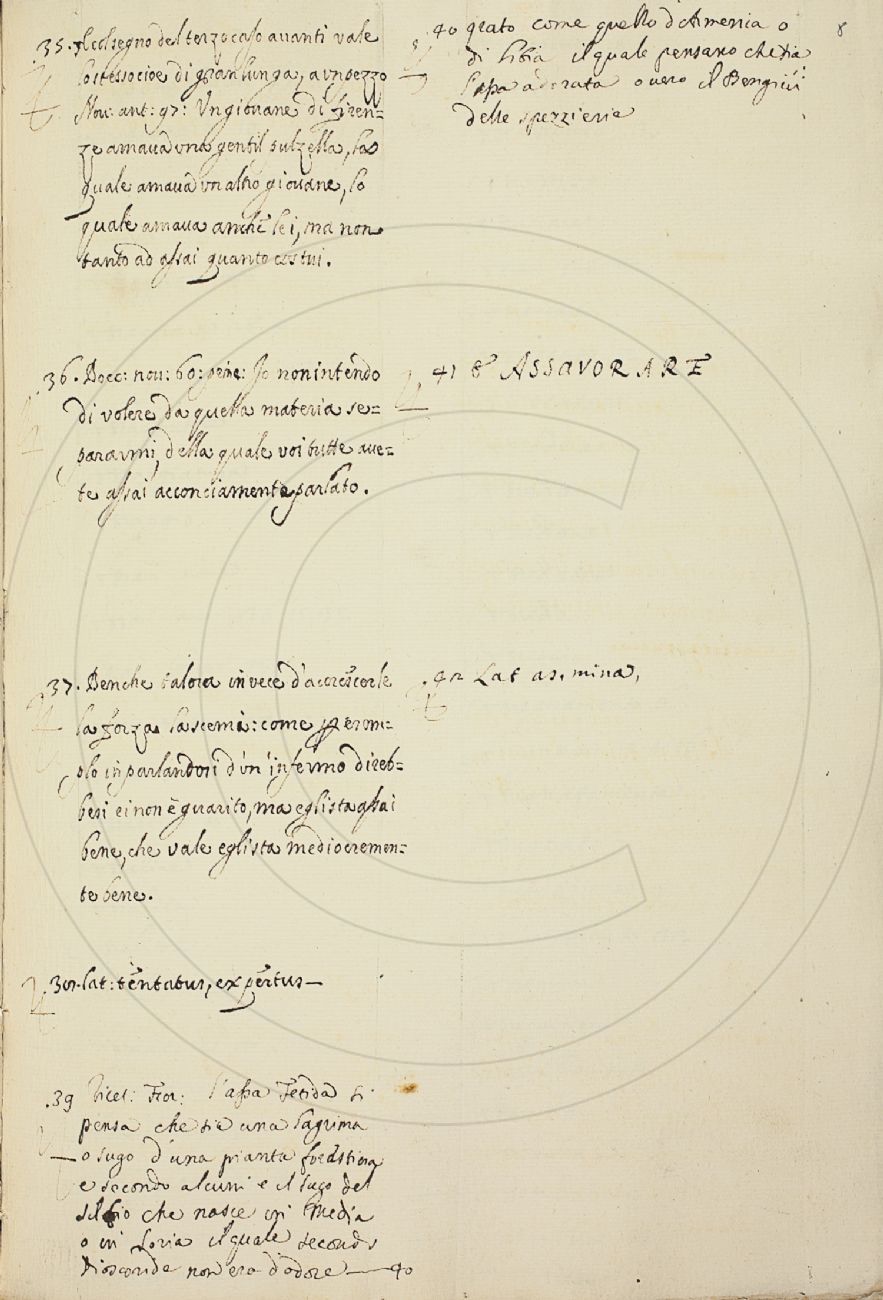 35. Il colsegno del terzo caso avanti vale
lo stesso cioe di gran lunga, a un pezzo
Nov: ant: 97: Un giovane di Firen=
ze amava una gentil pulzella, la
quale amava un altro giovane, lo
quale amava anche lei, ma non
tanto ad assai quanto costui.
36. Bocc: nov: 60: Io non intendo
di volere da quella materia se=
pararmi, della quale voi tutte ave=
te assai acconciamente parlato.
37. Benche talora in vece d'accrescerle
la forza la scemi: come per esem=
plo in parlandosi d'un' infermo direb=
besi ei non è guarito, ma egli sta assai
bene, che vale egli sta mediocremen=
te bene.
38. lat: tentatus, expertus—
39 Ricet: Fior: l'assa Fetida si
pensa che sie una lagrima
o sugo d'una pianta forestiera
e secondo alcuni e il sugo del
silfio che nasce in Media
o in Soria il quale secondo
Dioscoride non era d'odore — 40
40 grato come quello d'Armenia o
di Libia il quale pensano che sia
l'assa odorata o vero il Bengiui
delle spezzierie
8
41 & ASSAVORARE
42 Lat as. mina,